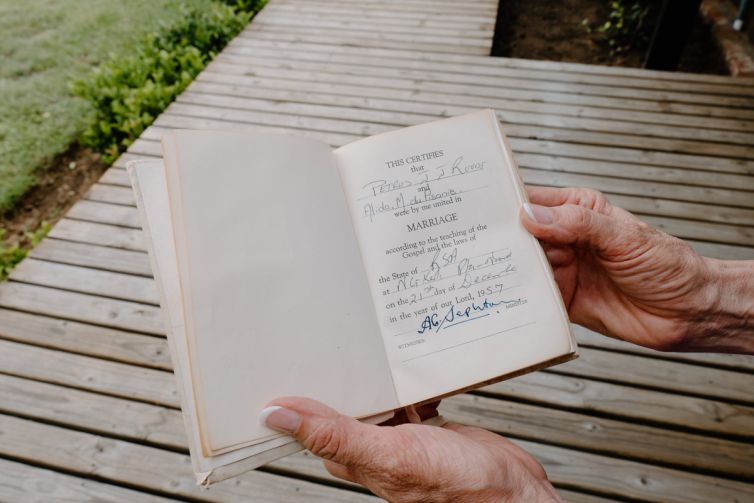 THIS CERTIFIES
that
Petrus J J
and
Alida M du
were by me united in
MARRIAGE
according to the teaching of the
Gospel and the laws of
the State of RSA
at N G Kerk
on the 21st day of Desember
in the year of our Lord, 1957
AG Sephton
MINISTER
WITNESSES